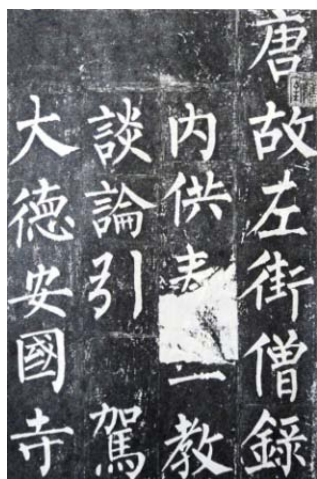 唐故左街僧録
内供奉教
談論引駕
大德安國寺